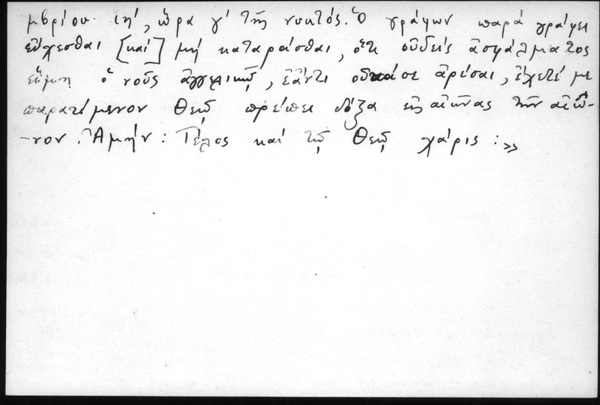 μβρίου ιη΄, ὥρα γ΄ τῆς νυκτός. Ὁ γράψων παρά γράψει
εὔχεσθαι [καί] μή καταρᾶσθαι, ὅτι οὐδείς ἀσφάλματος
εὕμη ὁ νοῦς ἀγγελικῷ, ἐᾶντι ἀρέσαι, ἔχετέ με
παρατέμενον Θεῷ πρέπει δόξα εἰς αἰῶνας τῶν αἰώ-
-νον. Ἀμήν: Τέλος καί τῷ Θεῷ χάρις :